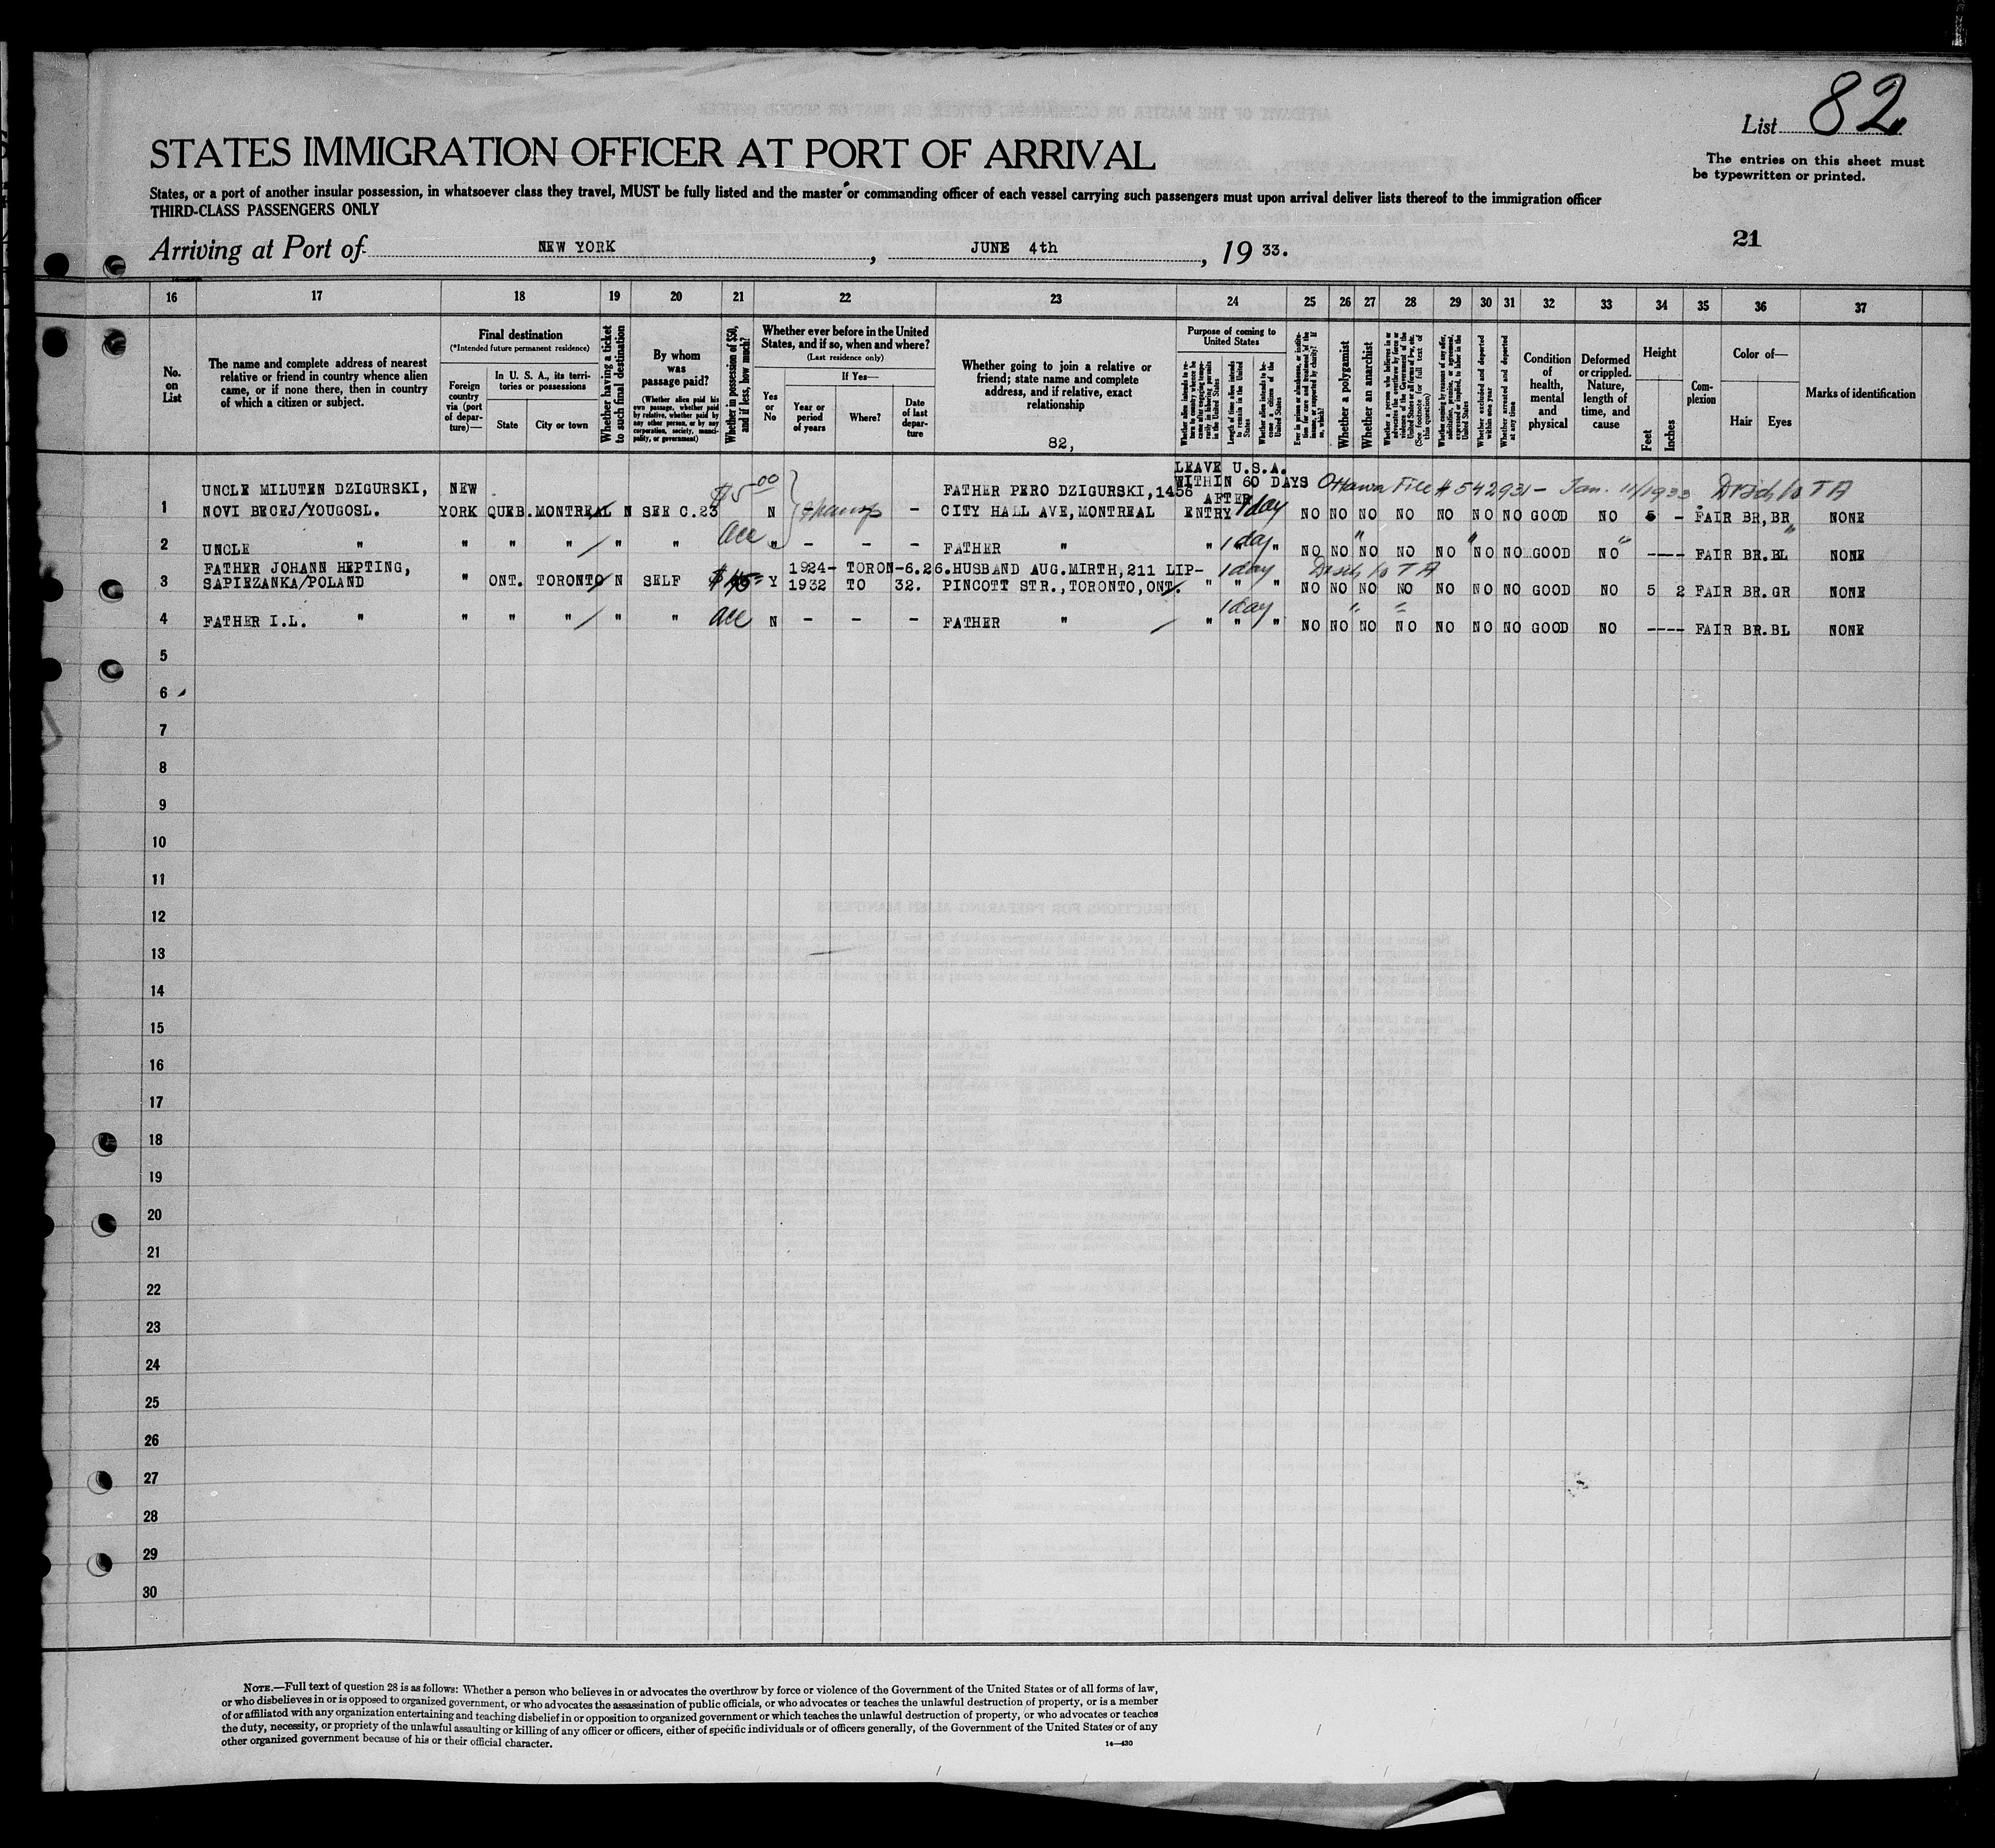 List 82
The entries on this sheet must
be typewritten or printed.
STATES IMMIGRATION OFFICER AT PORT OF ARRIVAL
States, or a port of another insular possession, in whatsoever class they travel, MUST be fully listed and the master or commanding officer of each vessel carrying such passengers must upon arrival deliver lists thereof to the immigration officer
THIRD-CLASS PASSENGERS ONLY
21
Arriving at Port of NEW YORK, JUNE 4th, 19 33.
16 17 18 19 20 21 22 23 24 25 26 27 28 29 30 31 32 33 34 35 36 37
No. on List
The name and complete address of nearest
relative or friend in country whence alien
came, or if none there, then in country
of which a citizen or subject.
Final destination
(*Intended future permanent residence)
Foreign country via (port of departure)—
In U. S. A., its territories or possessions
State
City or town
Whether having a ticket to such final destination
By whom was passage paid?
(Whether alien paid his own passage, whether paid by relative, whether paid by any other person, or by any corporation, society, municipality, or government)
Whether in possession of $50, and if less, how much?
Whether ever before in the United
States, and if so, when and where?
(Last residence only)
Yes or No
If Yes—
Year or period of years
Where?
Date of last departure
Whether going to join a relative or
friend; state name and complete
address, and if relative, exact
relationship
82,
Purpose of coming to United States
Whether alien intends to return to country whence he came after engaging temporarily in laboring pursuits in the United States
Length of time alien intends to remain in the United States
Whether alien intends to become a citizen of the United States
Ever in prison or almshouse, or institution for care and treatment of the insane, or supported by charity? If so, which?
Whether a polygamist
Whether an anarchist
Whether a person who believes in or advocates the overthrow by force or violence of the Government of the United States or all forms of law, etc. (See footnote for full text of this question)
Whether coming by reason of any offer, solicitation, promise, or agreement, expressed or implied, to labor in the United States
Whether excluded and deported within one year
Whether arrested and deported at any time
Condition of health, mental and physical
Deformed or crippled. Nature, length of time, and cause
Height
Feet
Inches
Complexion
Color of—
Hair
Eyes
Marks of identification
LEAVE U.S.A.
WITHIN 60 DAYS Ottawa File # 542931 - Jan. 11/1933
AFTER
1 UNCLE MILUTEN DZIGURSKI, NEW $5 00 FATHER PERO DZIGURSKI,1456
NOVI BECEJ/YOUGOSL. YORK QUEB. MONTREAL N SEE C.23 N - CITY HALL AVE,MONTREAL ENTRY 1 day NO NO NO NO NO NO NO GOOD NO 5 - FAIR BR, BR NONE
2 UNCLE " " " " " " " - - - FATHER " " 1 day " NO NO NO NO NO NO NO GOOD NO ---- FAIR BR. BL NONE
FATHER JOHANN HEPTING, 1924- TORON-6.26. HUSBAND AUG.MIRTH,211 LIP- 1 day
3 SAPIEZANKA/POLAND " ONT. TORONTO N SELF Y 1932 TO 32. PINCOTT STR.,TORONTO,ONT. " " " NO NO NO NO NO NO NO GOOD NO 5 2 FAIR BR. GR NONE
4 FATHER I.L. " " " " " " N - - - FATHER " 1 day " " " NO NO NO NO NO NO NO GOOD NO ---- FAIR BR. BL NONE
5
6
7
8
9
10
11
12
13
14
15
16
17
18
19
20
21
22
23
24
25
26
27
28
29
30
NOTE.—Full text of question 28 is as follows: Whether a person who believes in or advocates the overthrow by force or violence of the Government of the United States or of all forms of law,
or who disbelieves in or is opposed to organized government, or who advocates the assassination of public officials, or who advocates or teaches the unlawful destruction of property, or is a member
of or affiliated with any organization entertaining and teaching disbelief in or opposition to organized government or which teaches the unlawful destruction of property, or who advocates or teaches
the duty, necessity, or propriety of the unlawful assaulting or killing of any officer or officers, either of specific individuals or of officers generally, of the Government of the United States or of any
other organized government because of his or their official character.
14—430